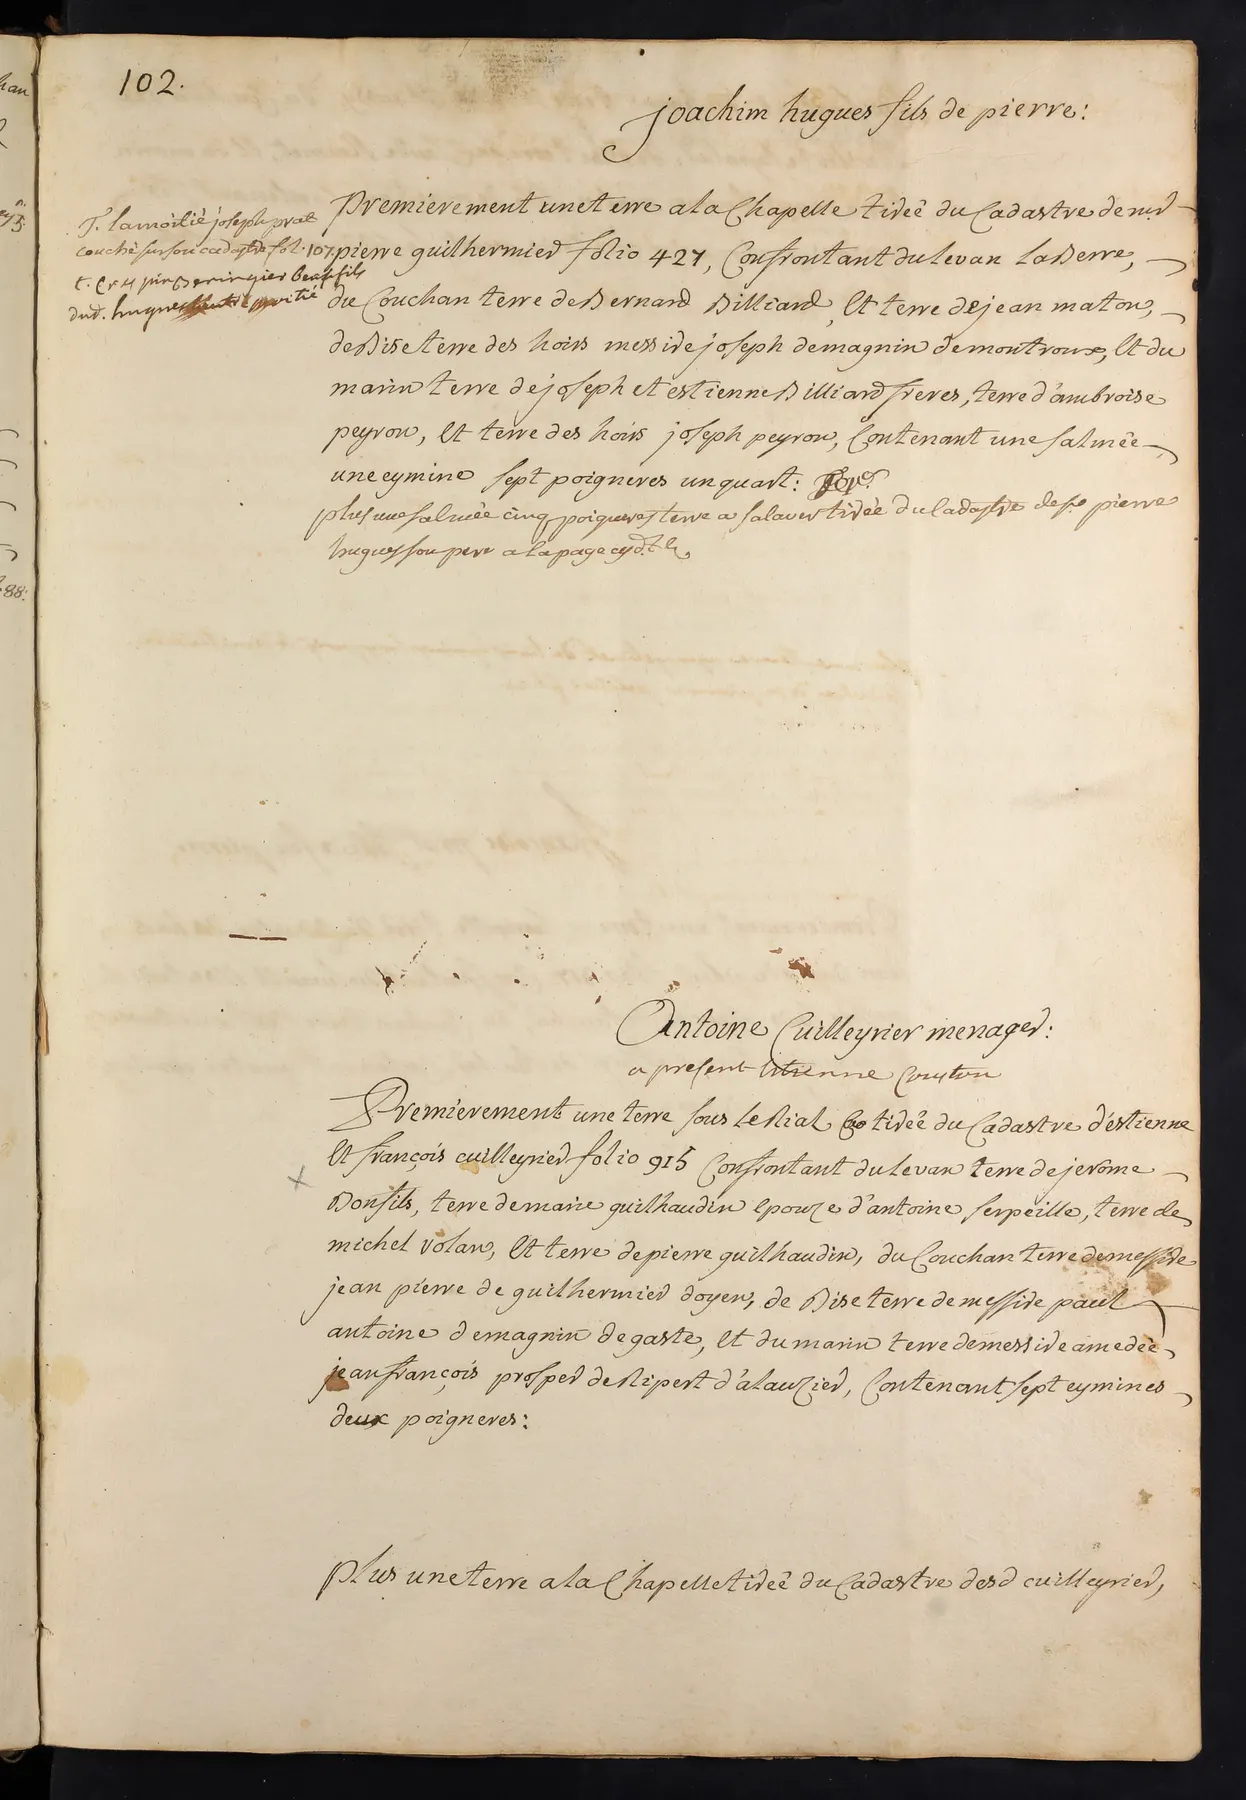 102.
joachim hugues fils de pierre:
T. la moitié joseph prat
couché sur son cadastre fol. 107.
t. Beringuier beaufils
dud. hugues
Premierement une terre a la Chapelle tirée du Cadastre de
pierre guilhermier folio 427, Confrontant du levan la Berre,
du Couchan terre de Bernard Billiard, Et terre de jean maton,
de Bise terre des hoirs messire joseph demagnin de montroux, Et du
marin terre de joseph et estienne Billiard freres, terre d'ambroise
peyron, Et terre des hoirs joseph peyron, Contenant une salmée
une eymine sept poigneres un quart:
plus une salmée cinq poigneres terre a salauer tirée du Cadastre de feu pierre
hugues son pere a la page
Antoine Cuilleyrier menager:
a present Etienne Couston
Premierement une terre sous le Rial tirée du Cadastre d'éstienne
Et françois cuilleyrier folio 915 Confrontant du levan terre de jerôme
Bonfils, terre de marie guilhaudin epouze d'antoine serpeille, terre de
michel volan, Et terre de pierre guilhaudin, du Couchan terre de messire
jean pierre de guilhermier doyen, de Bise terre de messire paul
antoine demagnin de gaste, Et du marin terre de messire amedée
jean françois prosper de Ripert d'alauzier, Contenant sept eymines
deux poigneres:
plus une terre a la Chapelle tirée du Cadastre desd cuilleyrier,